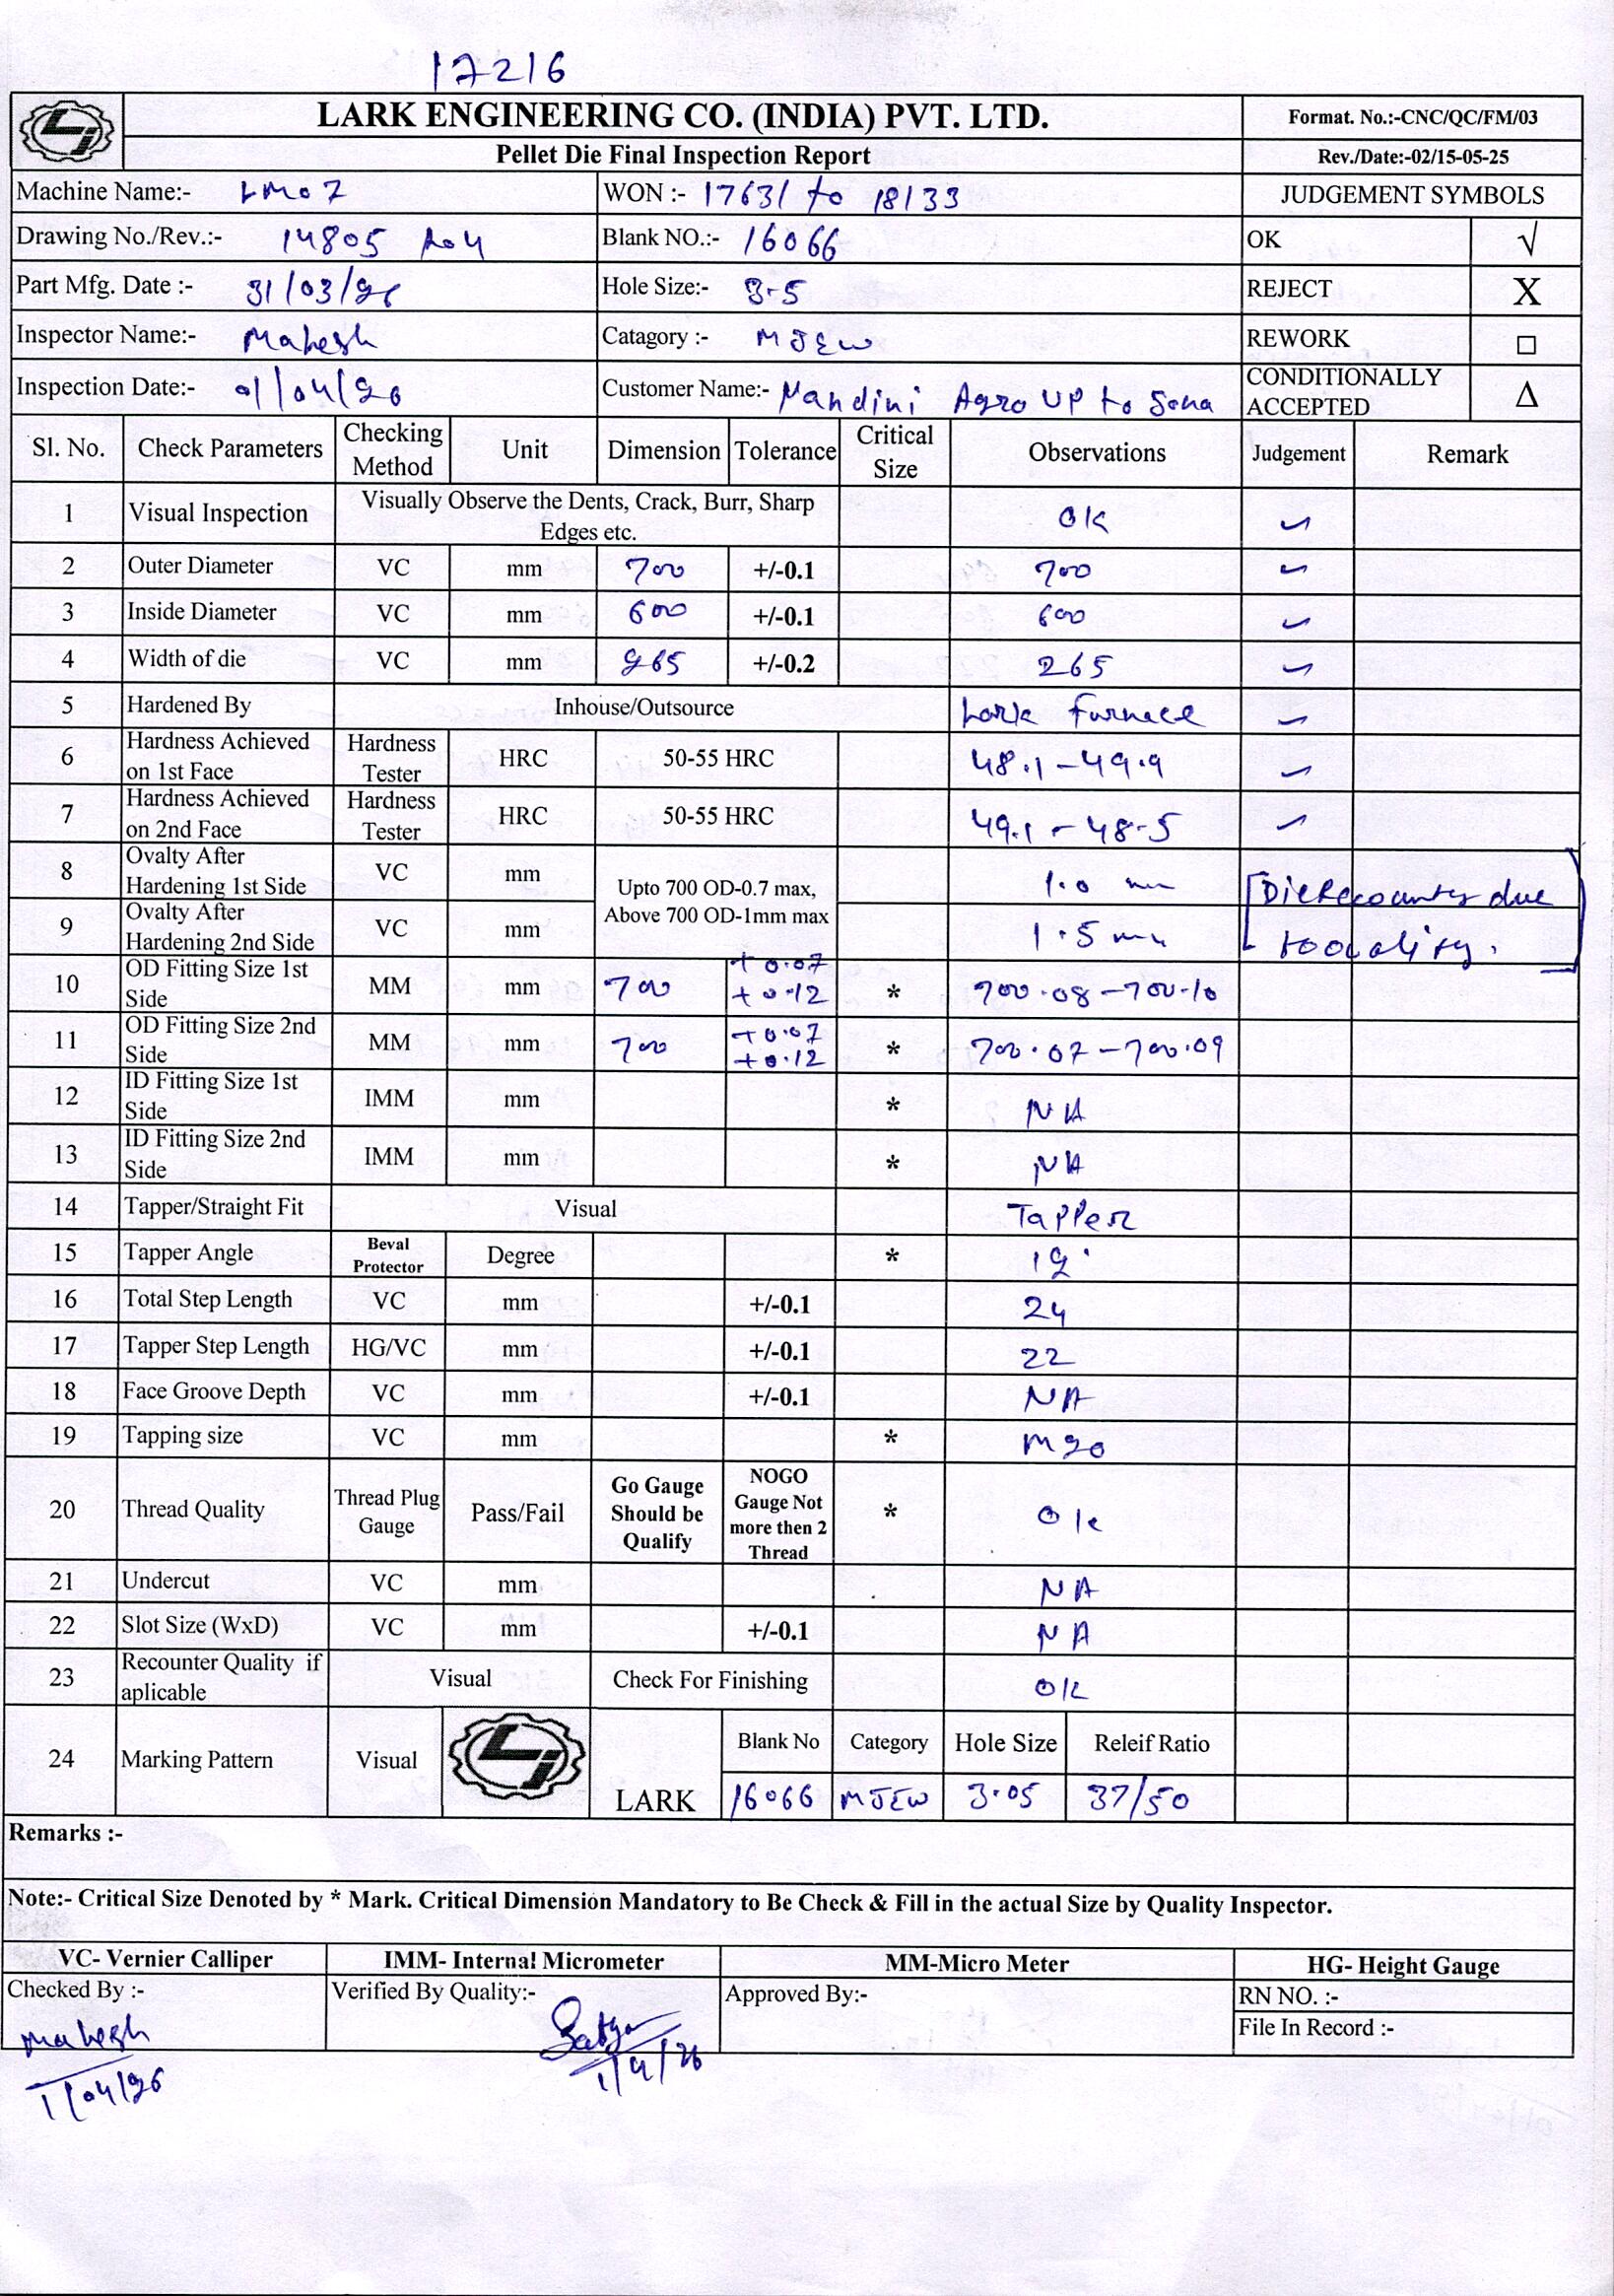 17216
LARK ENGINEERING CO. (INDIA) PVT. LTD.
Format. No.:-CNC/QC/FM/03
Pellet Die Final Inspection Report
Rev./Date:-02/15-05-25
Machine Name:- LM07
WON :- 17631 to 18133
JUDGEMENT SYMBOLS
Drawing No./Rev.:- 14805 R04
Blank NO.:- 16066
OK √
Part Mfg. Date :- 31/03/26
Hole Size:- 3.5
REJECT X
Inspector Name:- Mahesh
Catagory :- MJEW
REWORK □
Inspection Date:- 01/04/26
Customer Name:- Nandini Agro UP to Sona
CONDITIONALLY ACCEPTED Δ
Sl. No. Check Parameters Checking Method Unit Dimension Tolerance Critical Size Observations Judgement Remark
1 Visual Inspection Visually Observe the Dents, Crack, Burr, Sharp Edges etc. OK ✓
2 Outer Diameter VC mm 700 +/-0.1 700 ✓
3 Inside Diameter VC mm 600 +/-0.1 600 ✓
4 Width of die VC mm 265 +/-0.2 265 ✓
5 Hardened By Inhouse/Outsource Lark Furnace ✓
6 Hardness Achieved on 1st Face Hardness Tester HRC 50-55 HRC 48.1-49.9 ✓
7 Hardness Achieved on 2nd Face Hardness Tester HRC 50-55 HRC 49.1-48-5 ✓
8 Ovalty After Hardening 1st Side VC mm Upto 700 OD-0.7 max, Above 700 OD-1mm max 1.0 mm
9 Ovalty After Hardening 2nd Side VC mm 1.5 mm
[Die Recounter due to ovality.]
10 OD Fitting Size 1st Side MM mm 700 +0.07 +0.12 * 700.08-700.10
11 OD Fitting Size 2nd Side MM mm 700 +0.07 +0.12 * 700.07-700.09
12 ID Fitting Size 1st Side IMM mm * NA
13 ID Fitting Size 2nd Side IMM mm * NA
14 Tapper/Straight Fit Visual Tapper
15 Tapper Angle Beval Protector Degree *
16 Total Step Length VC mm +/-0.1 24
17 Tapper Step Length HG/VC mm +/-0.1 22
18 Face Groove Depth VC mm +/-0.1 NA
19 Tapping size VC mm * M20
20 Thread Quality Thread Plug Gauge Pass/Fail Go Gauge Should be Qualify NOGO Gauge Not more then 2 Thread * Ok
21 Undercut VC mm NA
22 Slot Size (WxD) VC mm +/-0.1 NA
23 Recounter Quality if aplicable Visual Check For Finishing OK
24 Marking Pattern Visual LARK Blank No Category Hole Size Releif Ratio
16066 MJEW 3.05 37/50
Remarks :-
Note:- Critical Size Denoted by * Mark. Critical Dimension Mandatory to Be Check & Fill in the actual Size by Quality Inspector.
VC- Vernier Calliper IMM- Internal Micrometer MM-Micro Meter HG- Height Gauge
Checked By :- Verified By Quality:- Approved By:- RN NO. :-
File In Record :-
Mahesh
1/04/26
Satya
1/4/26